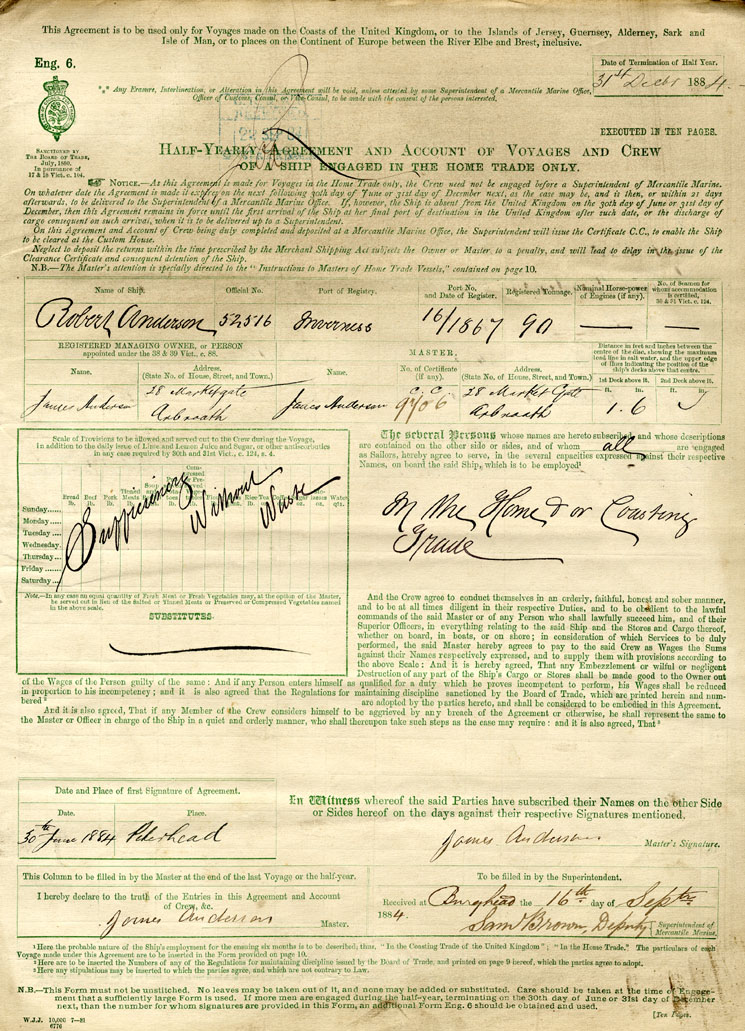 This Agreement is to be used only for Voyages made on the Coasts of the United Kingdom, or to the Islands of Jersey, Guernsey, Alderney, Sark and
Isle of Man, or to places on the Continent of Europe between the River Elbe and Brest, inclusive.
Eng. 6.
Date of Termination of Half Year.
31st Decbr 1884.
*** Any Erasure, Interlineation, or Alteration in this Agreement will be void, unless attested by some Superintendent of a Mercantile Marine Office,
Officer of Customs, Consul, or Vice-Consul, to be made with the consent of the persons interested.
SANCTIONED BY
THE BOARD OF TRADE,
July, 1880.
In pursuance of
17 & 18 Vict. c. 104.
EXECUTED IN TEN PAGES.
HALF-YEARLY AGREEMENT AND ACCOUNT OF VOYAGES AND CREW
OF A SHIP ENGAGED IN THE HOME TRADE ONLY.
NOTICE.—As this Agreement is made for Voyages in the Home Trade only, the Crew need not be engaged before a Superintendent of Mercantile Marine.
On whatever date the Agreement is made it expires on the next following 30th day of June or 31st day of December next, as the case may be, and is then, or within 21 days
afterwards, to be delivered to the Superintendent of a Mercantile Marine Office. If, however, the Ship is absent from the United Kingdom on the 30th day of June or 31st day of
December, then this Agreement remains in force until the first arrival of the Ship at her final port of destination in the United Kingdom after such date, or the discharge of
cargo consequent on such arrival, when it is to be delivered up to a Superintendent.
On this Agreement and Account of Crew being duly completed and deposited at a Mercantile Marine Office, the Superintendent will issue the Certificate C.C., to enable the Ship
to be cleared at the Custom House.
Neglect to deposit the returns within the time prescribed by the Merchant Shipping Act subjects the Owner or Master to a penalty, and will lead to delay in the issue of the
Clearance Certificate and consequent detention of the Ship.
N.B.—The Master's attention is specially directed to the "Instructions to Masters of Home Trade Vessels," contained on page 10.
Name of Ship. Official No. Port of Registry. Port No. and Date of Register. Registered Tonnage. Nominal Horse-power of Engines (if any). No. of Seamen for whom accommodation is certified, 30 & 31 Vict. c. 124.
Robert Anderson 52516 Inverness 16/1867 90 — —
REGISTERED MANAGING OWNER, OR PERSON
appointed under the 38 & 39 Vict., c. 88.
MASTER.
Distance in feet and inches between the
centre of the disc, showing the maximum
load line in salt water, and the upper edge
of lines indicating the position of the
ship's decks above that centre.
Name. Address. (State No. of House, Street, and Town.) Name. No. of Certificate (if any). Address. (State No. of House, Street, and Town.) 1st Deck above it. 2nd Deck above it.
ft. In. ft. In.
James Anderson 28 Marketgate Arbroath James Anderson 28 Market Gate Arbroath 1.6
Scale of Provisions to be allowed and served out to the Crew during the Voyage,
In addition to the daily issue of Lime and Lemon Juice and Sugar, or other antiscorbutics
in any case required by 30th and 31st Vict., c. 124, s. 4.
Bread lb. Beef lb. Pork lb.
Sunday
Monday
Tuesday
Wednesday
Thursday
Friday
Saturday
Sufficiency Without Waste
Note.—In any case an equal quantity of Fresh Meat or Fresh Vegetables may, at the option of the Master,
be served out in lieu of the Salted or Tinned Meats or Preserved or Compressed Vegetables named
in the above scale.
SUBSTITUTES.
The several Persons whose names are hereto subscribed, and whose descriptions
are contained on the other side or sides, and of whom all are engaged
as Sailors, hereby agree to serve, in the several capacities expressed against their respective
Names, on board the said Ship, which is to be employed¹
In the Home & or Coasting
Trade
And the Crew agree to conduct themselves in an orderly, faithful, honest and sober manner,
and to be at all times diligent in their respective Duties, and to be obedient to the lawful
commands of the said Master or of any Person who shall lawfully succeed him, and of their
Superior Officers, in everything relating to the said Ship and the Stores and Cargo thereof,
whether on board, in boats, or on shore; in consideration of which Services to be duly
performed, the said Master hereby agrees to pay to the said Crew as Wages the Sums
against their Names respectively expressed, and to supply them with provisions according to
the above Scale: And it is hereby agreed, That any Embezzlement or wilful or negligent
Destruction of any part of the Ship's Cargo or Stores shall be made good to the Owner out
of the Wages of the Person guilty of the same: And if any Person enters himself as qualified for a duty which he proves incompetent to perform, his Wages shall be reduced
in proportion to his incompetency; and it is also agreed that the Regulations for maintaining discipline sanctioned by the Board of Trade, which are printed herein and num-
bered² are adopted by the parties hereto, and shall be considered to be embodied in this Agreement.
And it is also agreed, That if any Member of the Crew considers himself to be aggrieved by any breach of the Agreement or otherwise, he shall represent the same to
the Master or Officer in charge of the Ship in a quiet and orderly manner, who shall thereupon take such steps as the case may require: and it is also agreed, That³
Date and Place of first Signature of Agreement.
Date. Place.
30th June 1884 Peterhead
In Witness whereof the said Parties have subscribed their Names on the other Side
or Sides hereof on the days against their respective Signatures mentioned.
James Anderson Master's Signature.
This Column to be filled in by the Master at the end of the last Voyage or the half-year.
I hereby declare to the truth of the Entries in this Agreement and Account
of Crew, &c.
James Anderson Master.
To be filled in by the Superintendent.
Received at Burghead the 16th day of Septr
1884. Saml Brown, Deputy Superintendent of Mercantile Marine.
¹ Here the probable nature of the Ship's employment for the ensuing six months is to be described, thus, "In the Coasting Trade of the United Kingdom"; "In the Home Trade." The particulars of each
Voyage made under this Agreement are to be inserted in the Form provided on page 10.
² Here are to be inserted the Numbers of any of the Regulations for maintaining discipline issued by the Board of Trade, and printed on page 9 hereof, which the parties agree to adopt.
³ Here any stipulations may be inserted to which the parties agree, and which are not contrary to Law.
N.B.—This Form must not be unstitched. No leaves may be taken out of it, and none may be added or substituted. Care should be taken at the time of Engage-
ment that a sufficiently large Form is used. If more men are engaged during the half-year, terminating on the 30th day of June or 31st day of December
next, than the number for whom signatures are provided in this Form, an additional Form Eng. 6 should be obtained and used.
W.J.J. 10,000 7—81
6776
[Ten Pages.